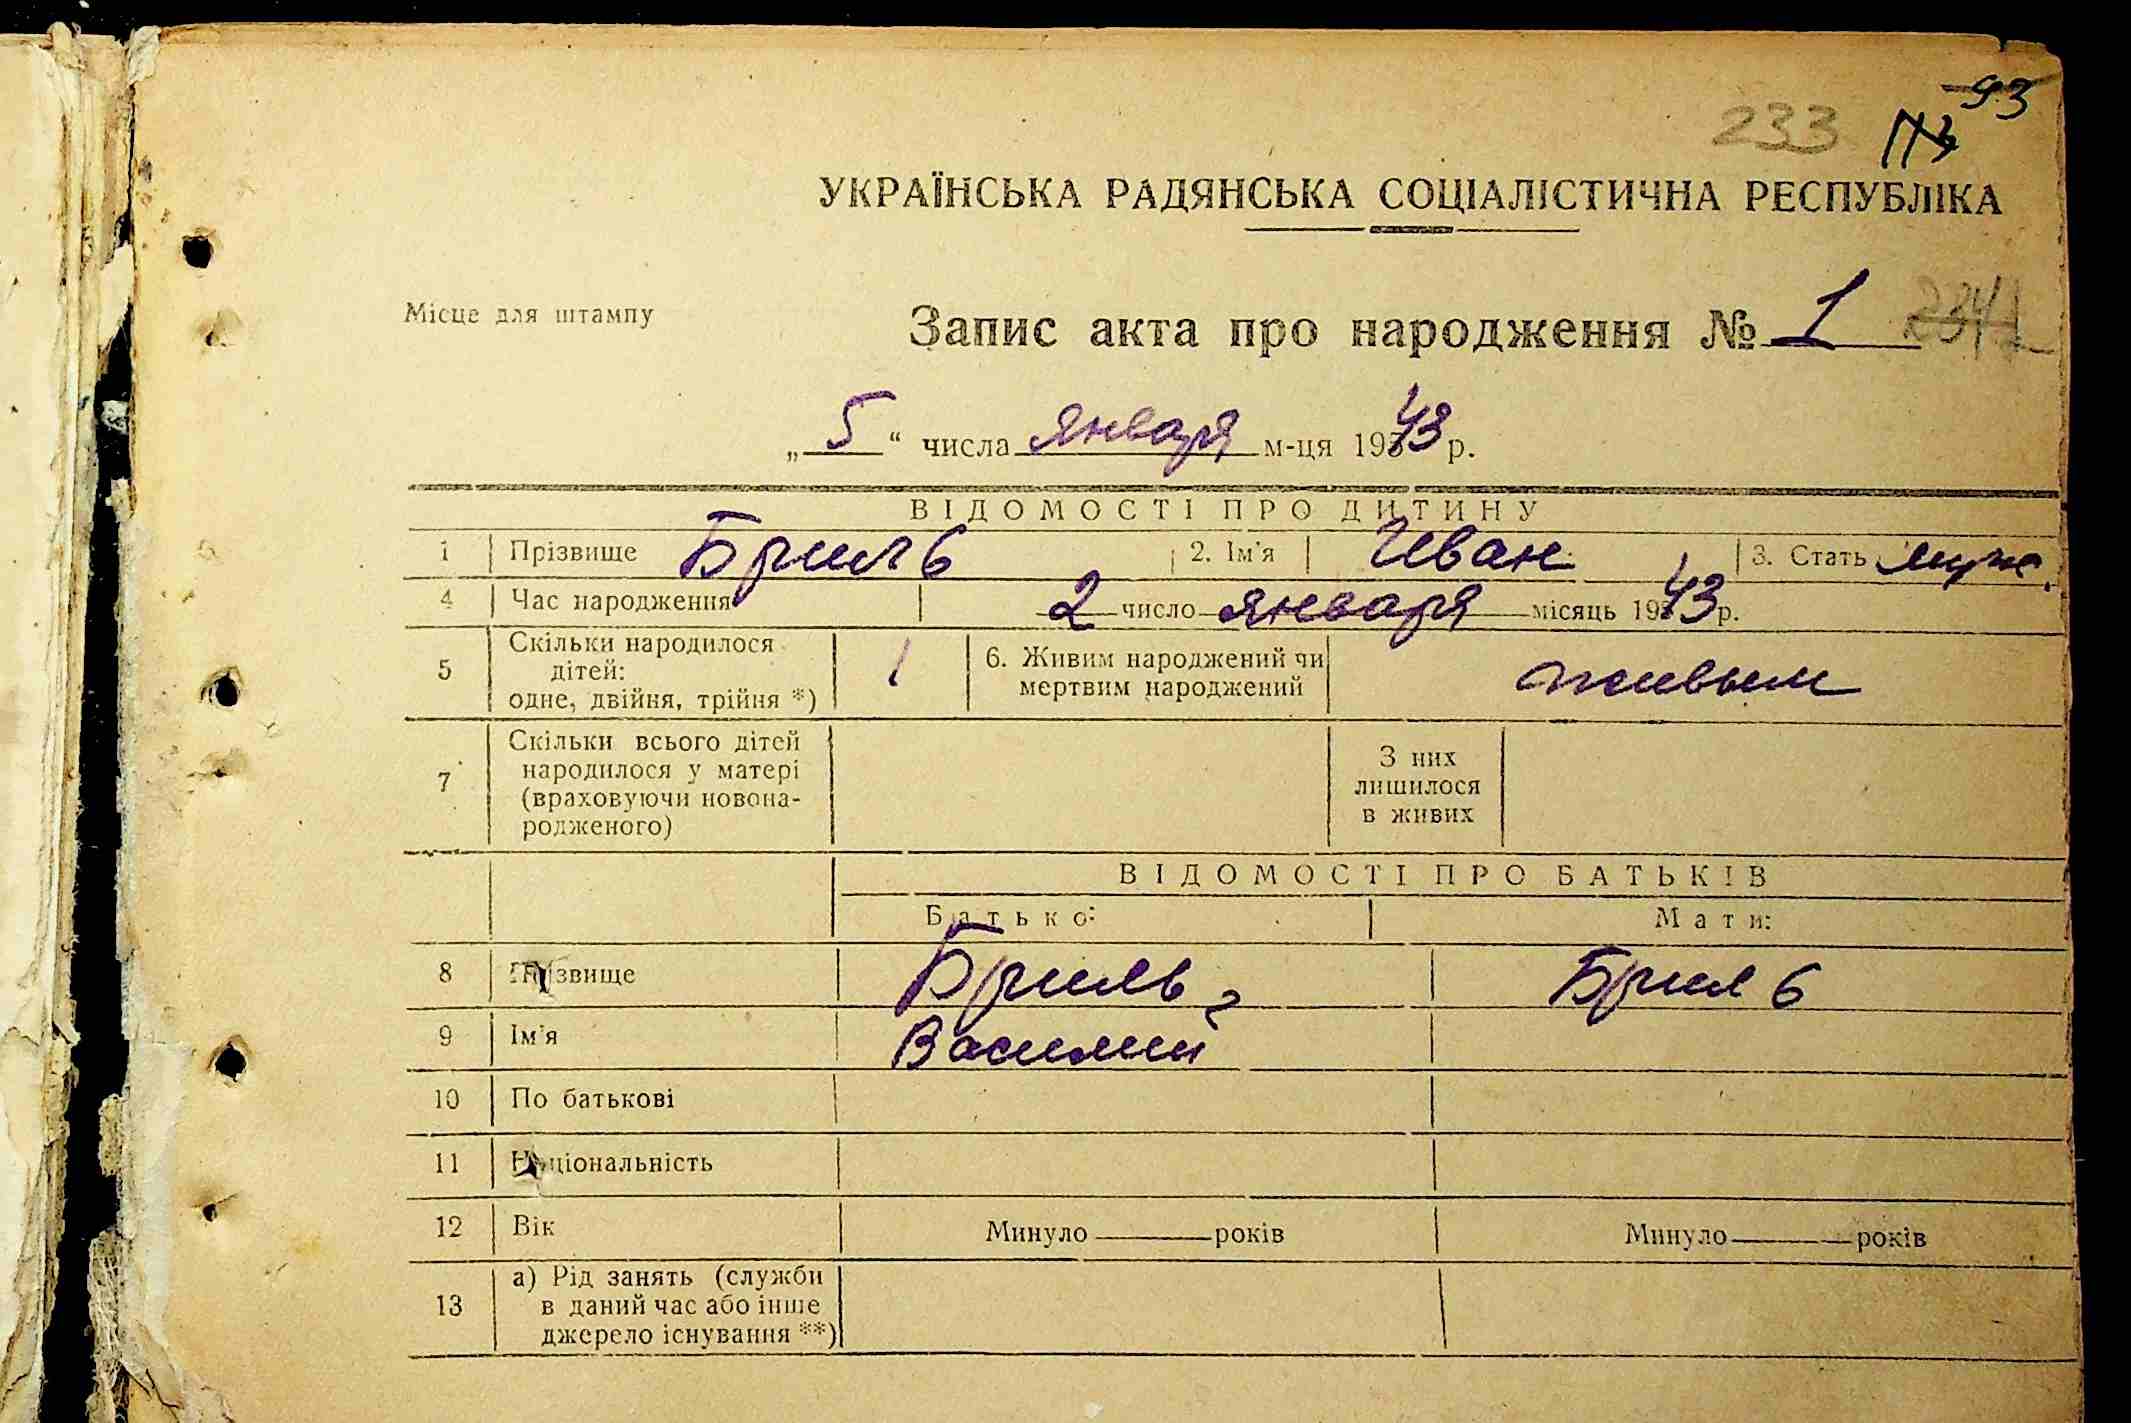 93
233
УКРАЇНСЬКА РАДЯНСЬКА СОЦІАЛІСТИЧНА РЕСПУБЛІКА
Місце для штампу
Запис акта про народження № 1
„5“ числа января м-ця 1943 р.
ВІДОМОСТІ ПРО ДИТИНУ
1 Прізвище Бриль 2. Ім'я Иван 3. Стать муж.
4 Час народження 2 число января місяць 1943 р.
5 Скільки народилося дітей: одне, двійня, трійня *) 1 6. Живим народжений чи мертвим народжений живым
7 Скільки всього дітей народилося у матері (враховуючи новона-родженого) З них лишилося в живих
ВІДОМОСТІ ПРО БАТЬКІВ
Батько: Мати:
8 Прізвище Бриль, Бриль
9 Ім'я Василий
10 По батькові
11 Національність
12 Вік Минуло років Минуло років
13 а) Рід занять (служби в даний час або інше джерело існування **)